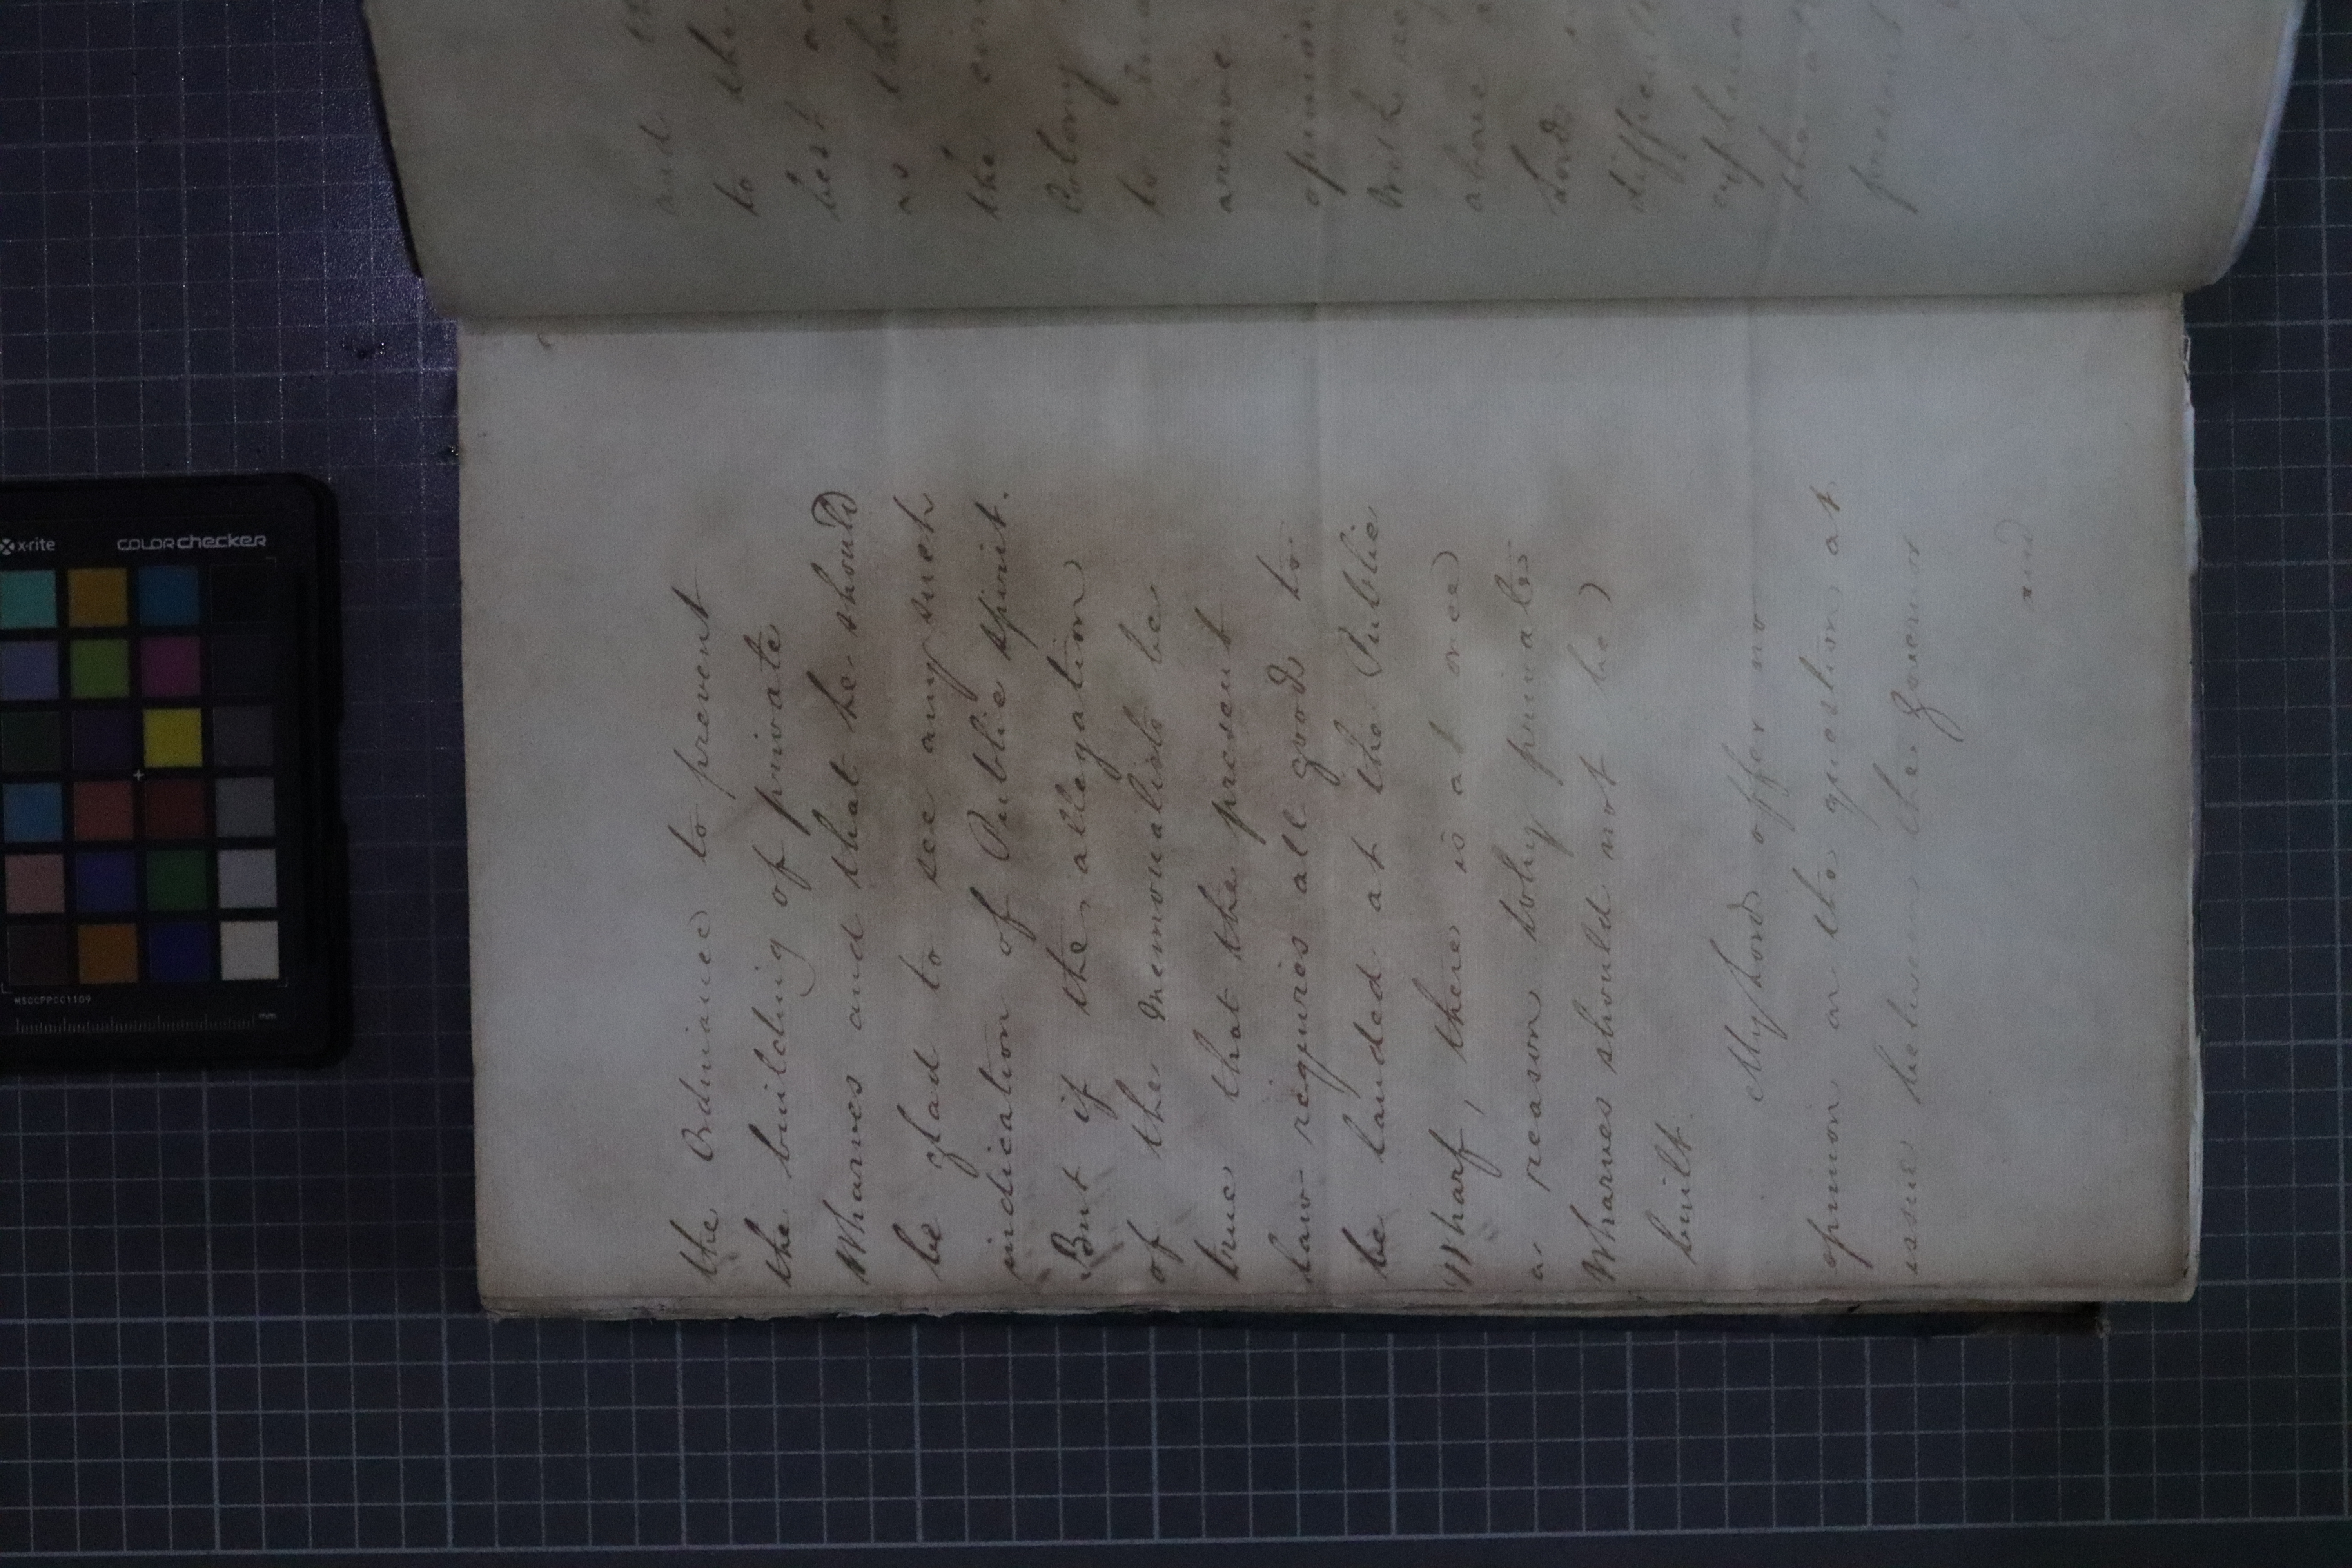 the Ordinance to prevent
the building of private
Wharves and that he should
be glad to see any such
indication of Public spirit.
But if the allegation
of the Memorialists be
true that the present
law requires all goods to
be landed at the Public
Wharf, there is at once
a reason why private
Wharves should not be
built.
My Lord offer no
opinion on the question at
issue between the Governor
and
and
to the
best
as
the
Colony
to
arrive
opinion
With
above
Lord
x-rite
colorchecker
MSCCPPCC1109
mm